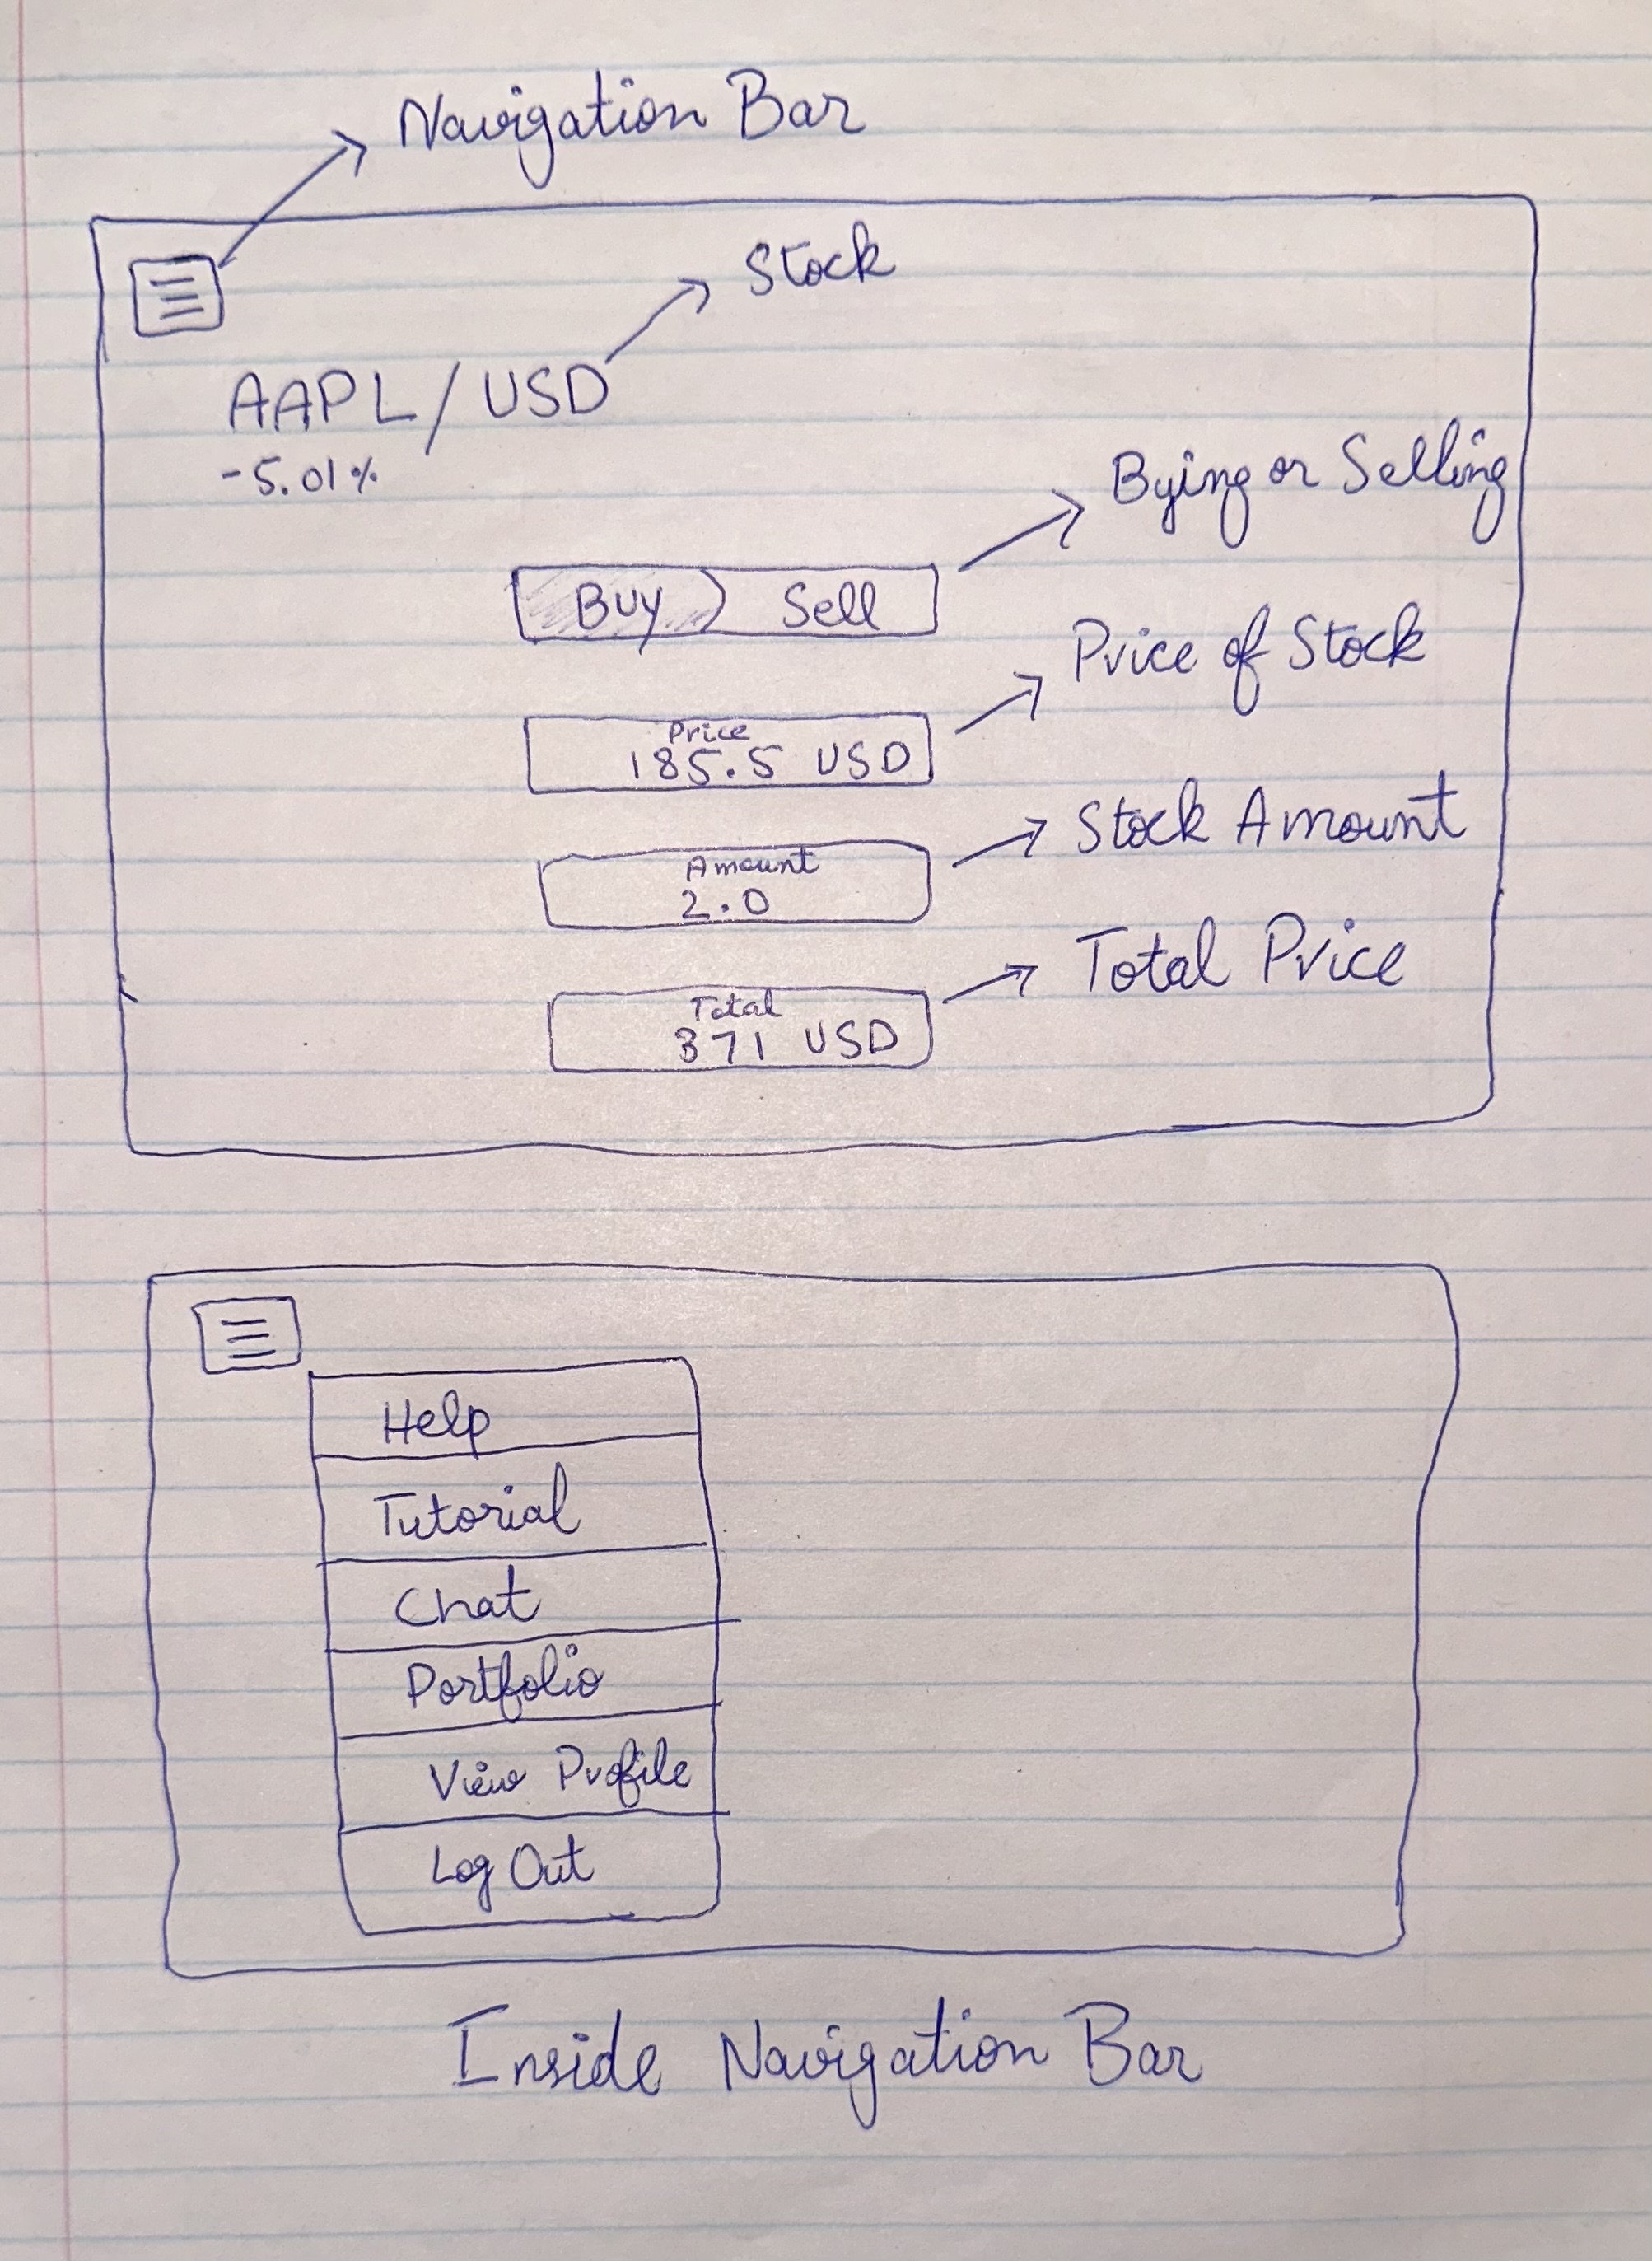 Navigation Bar
Stock
AAPL/USD
-5.01%
Bying or Selling
Buy Sell
Price of Stock
Price
185.5 USD
Stock Amount
Amount
2.0
Total Price
Total
371 USD
Help
Tutorial
Chat
Portfolio
View Profile
Log Out
Inside Navigation Bar